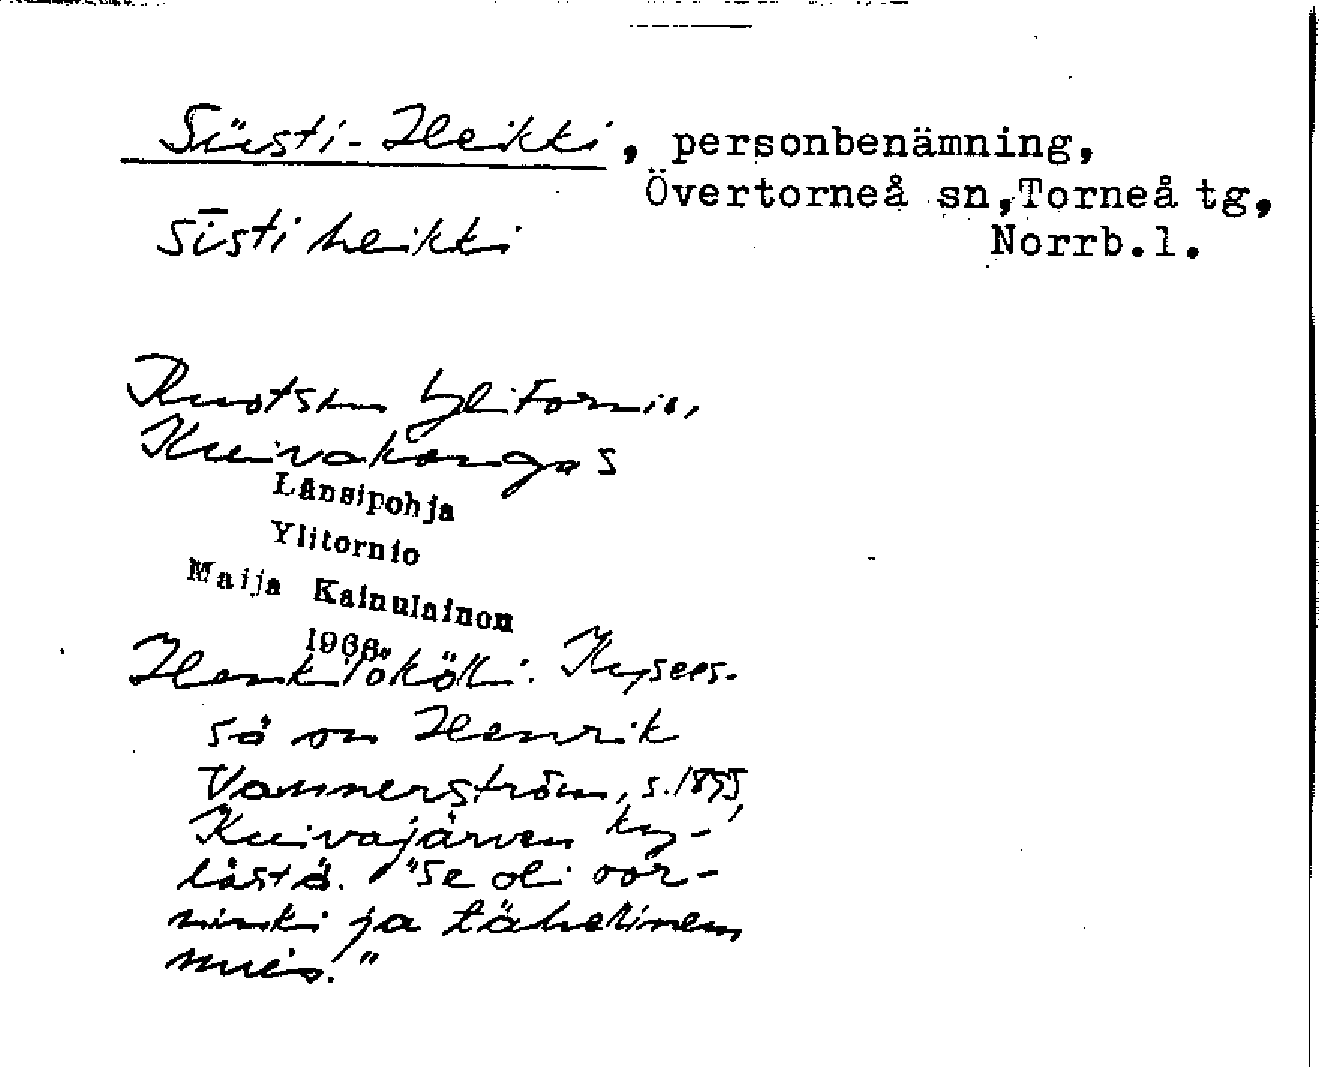 Siisti-Heikki, personbenämning,
Övertorneå sn, Torneå tg,
Norrb.l.
sīsti heikki
Ruotsin Ylitornio,
Kuivakangas
Länsipohja
Ylitornio
Maija Kainulainen
1966.
Henkilökölli. Kysees-
sä on Henrik
Vannerström, s. 1895,
Kuivajärven ky-
lästä. "Se oli oor-
ninki ja tähellinen
mies."